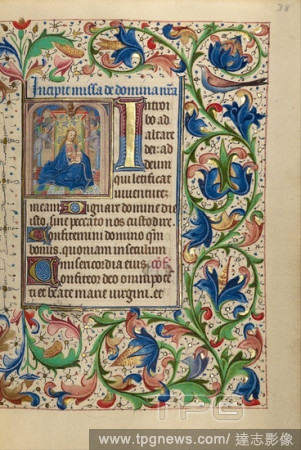 38
Incipit missa de domina nr̄a
Introi
bo ad
altare
dei: ad
deum
qui letificat
iuuentutez
meam Dignare domine di
isto, sine peccato nos custodire.
Confitemini domino qm̄
bonus, quoniam in seculum
misericordia eius. cōf
Confiteor deo omnipotē
ti et beate marie virgini. et
TPG
www.tpgnews.com/ 達志影像